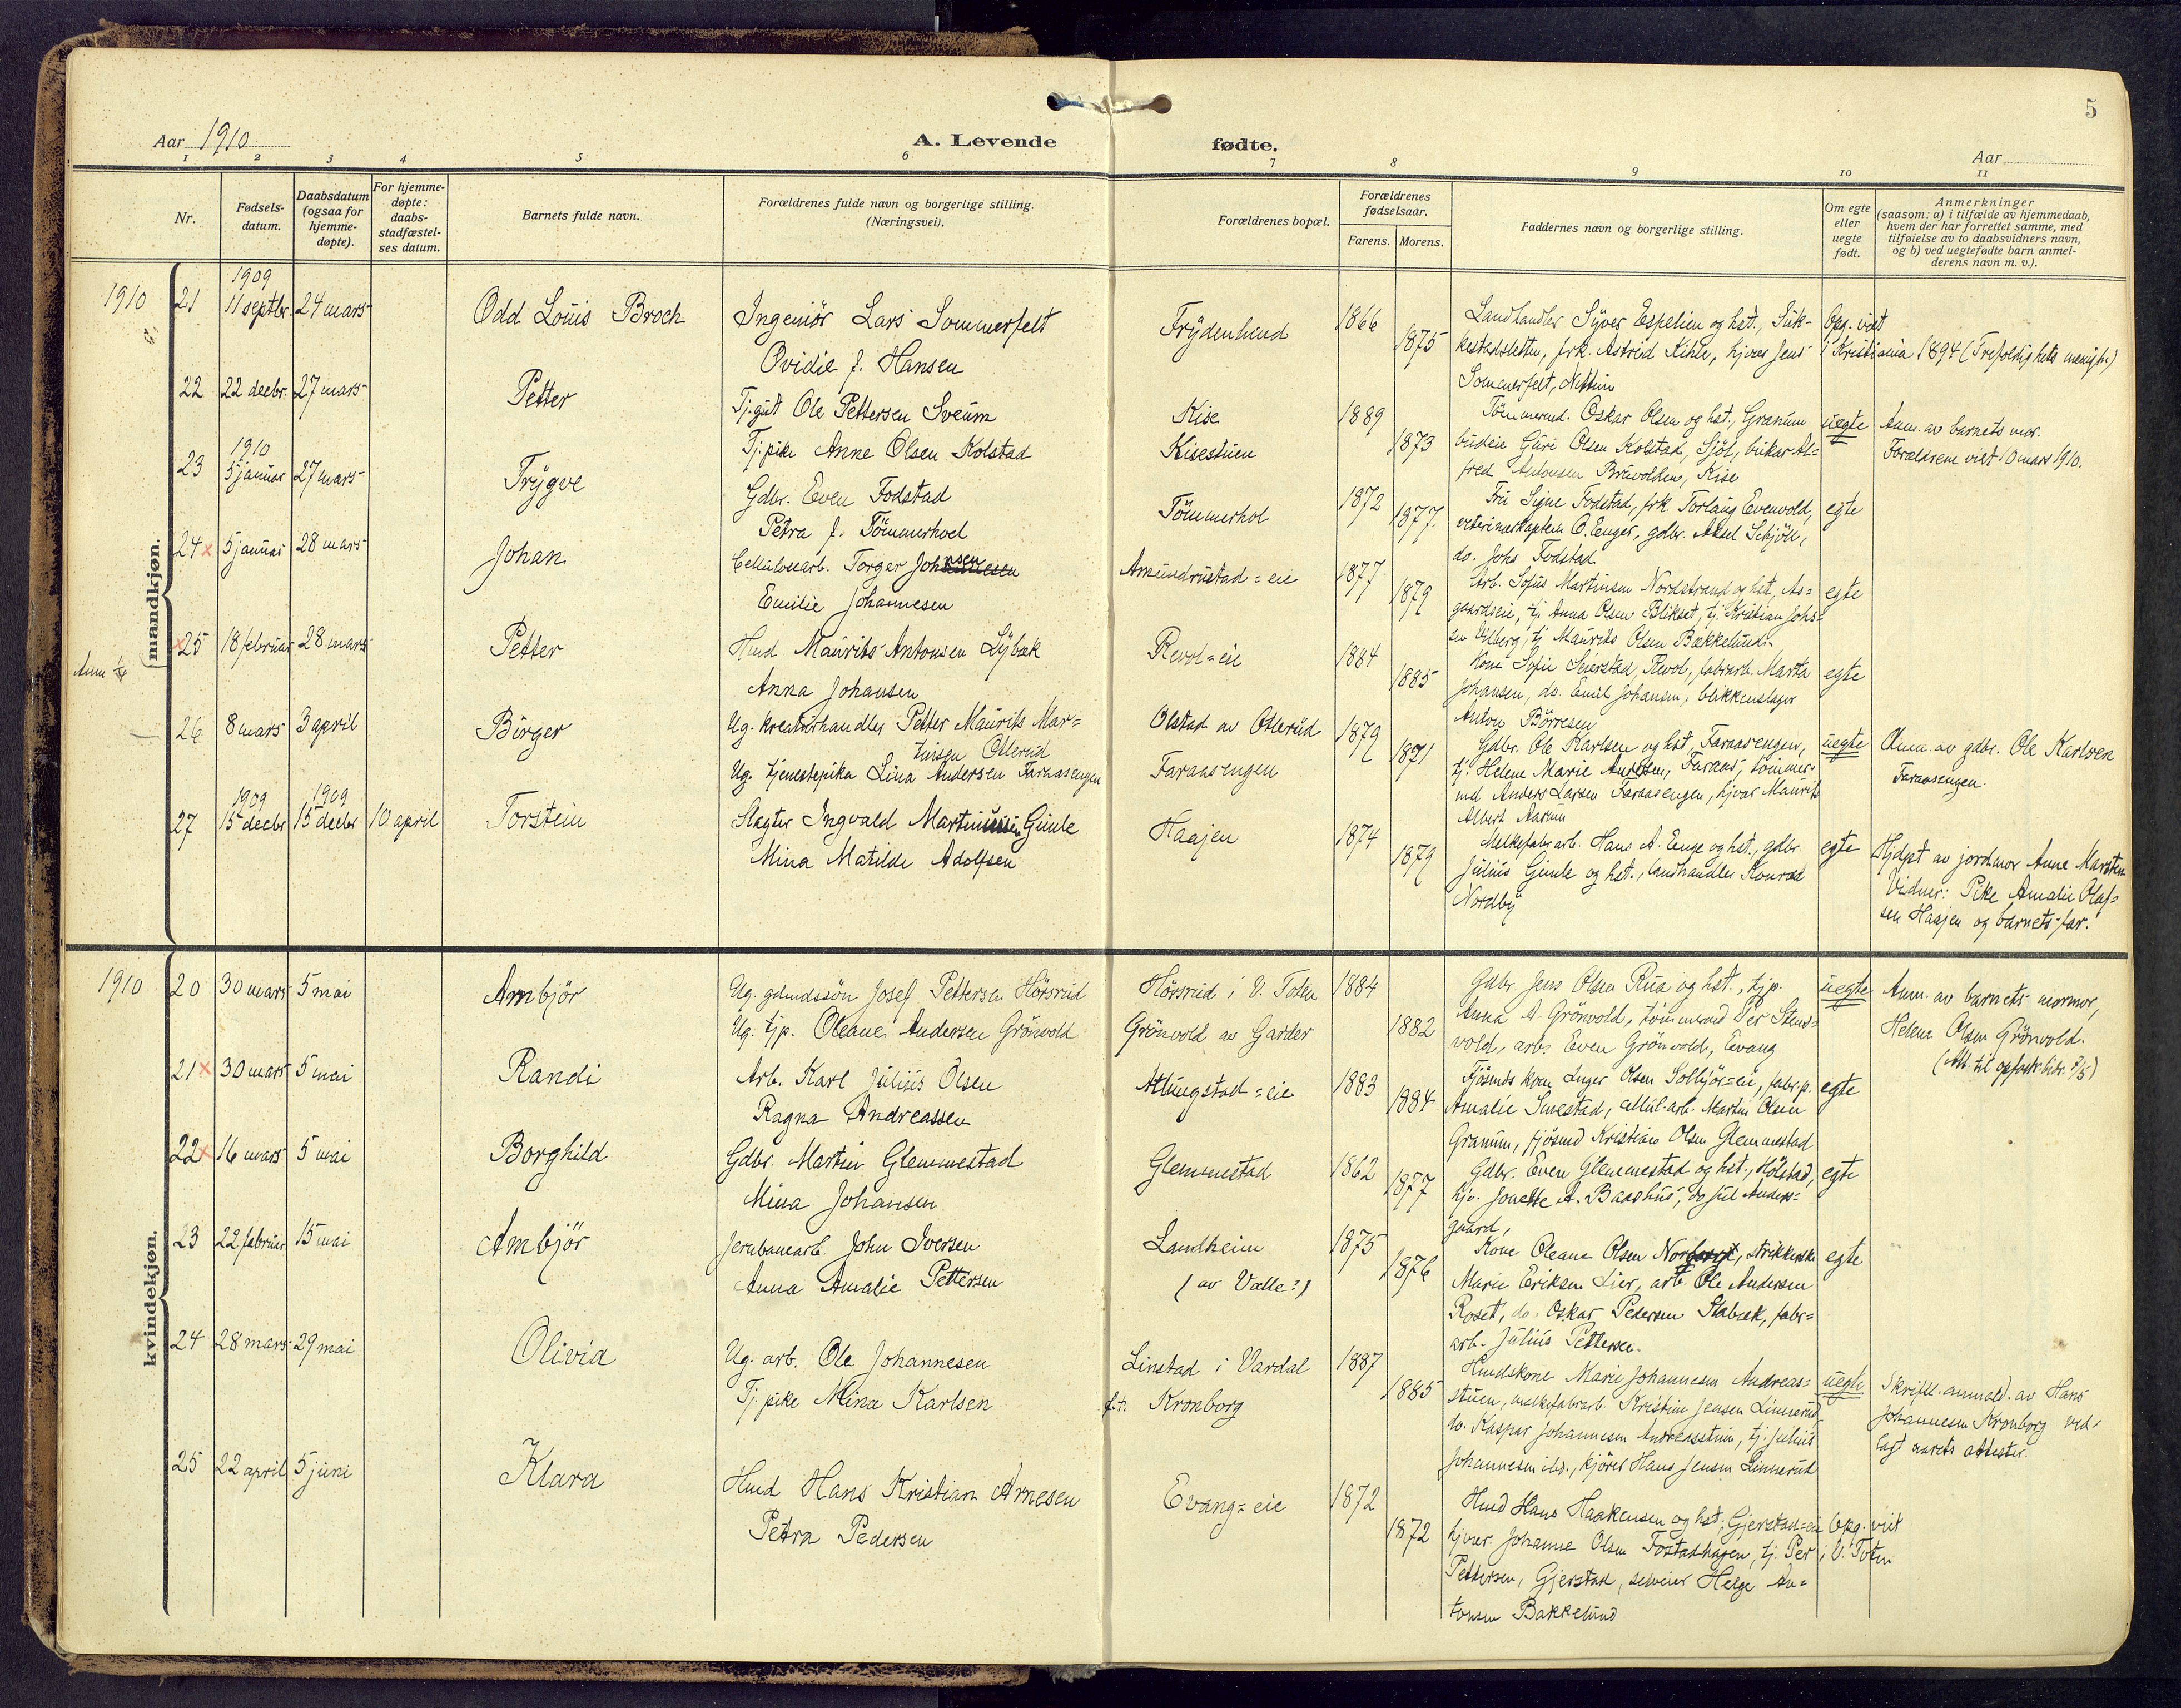 5
Aar 1910
A. Levende fødte.
Aar
1 2 3 4 5 6 7 8 9 10 11
Nr.
Fødsels-
datum.
Daabsdatum
(ogsaa for
hjemme-
døpte).
For hjemme-
døpte:
daabs-
stadfæstel-
ses datum.
Barnets fulde navn.
Forældrenes fulde navn og borgerlige stilling.
(Næringsvei).
Forældrenes bopæl.
Forældrenes
fødselsaar.
Farens. Morens.
Faddernes navn og borgerlige stilling.
Om egte
eller
uegte
født.
Anmerkninger
(saasom: a) i tilfælde av hjemmedaab,
hvem der har forrettet samme, med
tilføielse av to daabsvidners navn,
og b) ved uegtefødte barn anmel-
derens navn m. v.).
mandkjøn.
1910 21
1909
11 septbr. 24 mars
Odd Louis Broch
Ingeniör Lars Sommerfelt
Ovidie f. Hansen
Frydenlund
1866
1875
Landhandler Syver Espelien og hst., Suk-
kestadsletten, frk. Astrid Kihle, hjvær. Jens
Sommerfelt,
Opg. viet
i Kristiania 1894 (Trefoldighets menigh.)
22 22 decbr. 27 mars
Petter
Tj.gut Ole Pettersen Sveum
Tj.pike Anne Olsen Kolstad
Kise
Kisestuen
1889
1873
Tömmermd. Oskar Olsen og hst., Granum
budeie Guri Olsen Kolstad, Sjöl,
fred Antonsen Kise
uegte
Anm. av barnets mor.
Forældrene viet 10 mars 1910.
23
1910
5 januar 27 mars
Trygve
Gdbr. Even Fodstad
Petra f. Tömmerhoel
Tömmerhol
1872
1877.
Fru Signe Fodstad, frk. Torlaug Evenvold,
veterinærkaptein O. Enger, gdbr. Aksel Schjöll,
do. Johs Fodstad
egte
24 x 5 januar 28 mars
Johan
Cellulosearb. Torger Johnsen
Emilie Johannesen
Amundrustad=eie
1877
1879
Arb. Sofus Martinsen Nordstrand og hst, As=
gaardseie, tj. Anna Olsen Blikset, tj. Kristian Johs=
sen tj Maurits Olsen Bækkelund.
egte
x 25 18 februar 28 mars
Petter
Hmd Maurits Antonsen Lybæk
Anna Johansen
Revol=eie
1884
1885
Kone Sofie Seierstad, Revol, fabrarb. Marta
Johansen, do. Emil Johansen, blikkenslager
Anton Börresen
egte
26 8 mars 3 april
Birger
Ug. kreaturhandler Petter Maurits Mar=
tinsen Olterud
Ug. tjenestepike Lina Andersen Faraasengen
Olstad av Olterud
Faraasengen
1879
1871
Gdbr. Ole Karlsen og hst, Faraasengen,
tj. Helene Marie Faraas, tömmer-
md Anders Larsen Faraasengen, hjvær Maurits
Albert Aasen
uegte
Anm. av gdbr. Ole Karlsen
Faraasengen.
27
1909
15 decbr
1909
15 decbr 10 april
Torstein
Slagter Ingvald Martinsen Gimle
Mina Matilde Adolfsen
Haajen
1874
1879
Melkefabr.arb. Hans A. Enge og hst., gdbr.
Julius Gimle og hst., landhandler Konrad
Nordby
egte
Hjdøpt av jordmor Anne
Vidner: Pike Amalie Olaf-
sen Haajen og barnets far.
kvindekjøn.
1910 20 30 mars 5 mai
Ambjör
Ug. gdmdssön Josef Pettersen Hörsrud
Ug. tjp. Oleane Andersen Grönvold
Hörsrud i V. Toten
Grönvold av Garder
1884
1882
Gdbr. Jens Olsen Rua og hst., tjp.
Anna A. Grönvold, tömmermd Per Stens=
vold, arb. Even Grönvold, Evang
uegte
Anm. av barnets mormor,
Helene Olsen Grönvold.
21 x 30 mars 5 mai
Randi
Arb. Karl Julius Olsen
Ragna Andreassen
Atlungstad=eie
1883
1884
Fjösmds kone Inger Olsen Solbjör=eie, fabr.p.
Amalie Smestad, cellul-arb. Martin Olsen
Granum, fjösmd Kristian Olsen Glemmestad
egte
22 x 16 mars 5 mai
Borghild
Gdbr. Martin Glemmestad
Mina Johansen
Glemmestad
1862
1877
Gdbr. Even Glemmestad og hst., Holstad,
hjv. Jonette A. Baashus, do Juul Anders=
gaard,
egte
23 22 februar 15 mai
Ambjör
Jernbanearb. John Iversen
Anna Amalie Pettersen
Landheim
(av Valle?)
1875
1876
Kone Oleane Olsen strikkerske
Marie Eriksen Lier, arb Ole Andersen
Roset, do. Oskar Pedersen Stabæk, fabr=
arb. Julius Pettersen.
egte
24 28 mars 29 mai
Olivia
Ug. arb. Ole Johannesen
Tj. pike Mina Karlsen
Linstad i Vardal
f.t. Kronborg
1887
1885
Hmdskone Marie Johannesen Andreas=
stuen, melkefabrarb. Kristine Jensen Linnerud
do. Kaspar Johannesen Andreasstuen, tj. Julius
Johannesen ibd., kjörer Hans Jensen Linnerud
uegte
Skriftl. anmeld. av Hans
Johannesen Kronborg ved-
lagt aarets attester.
25 22 april 5 juni
Klara
Hmd Hans Kristian Arnesen
Petra Pedersen
Evang=eie
1872
1872
Hmd Hans Haakensen og hst, Gjerstad=eie
hjvær. Johanne Olsen Fostadhagen, tj. Per
Pettersen, Gjerstad, selveier Helge An=
tonsen Bakkelund
Opg. viet
i V. Toten